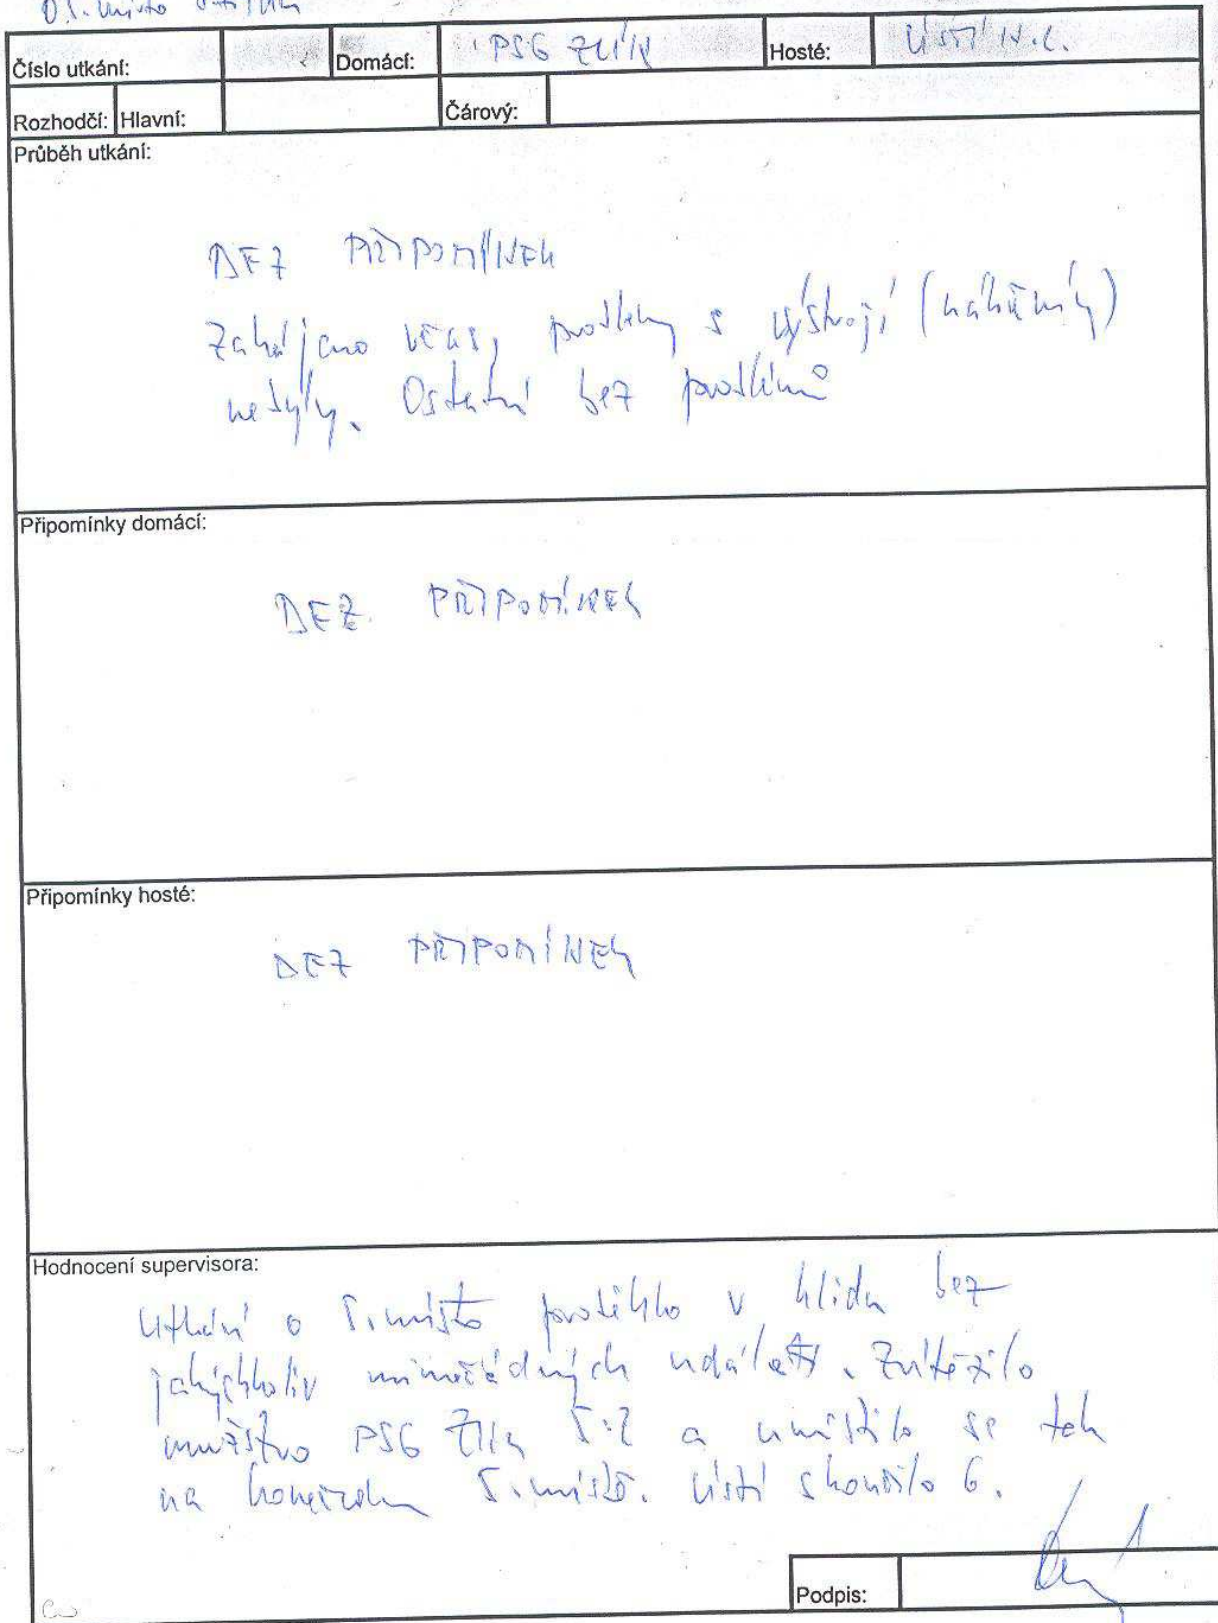 o 5. místo
Číslo utkání: Domácí: PSG ZLÍN Hosté: ÚSTÍ N.L.
Rozhodčí: Hlavní: Čárový:
Průběh utkání:
BEZ PŘIPOMÍNEK
Zahájeno včas, problémy s výstrojí (náhubky)
nebyly. Ostatní bez problémů
Připomínky domácí:
BEZ PŘIPOMÍNEK
Připomínky hosté:
BEZ PŘIPOMÍNEK
Hodnocení supervisora:
Utkání o 5. místo proběhlo v klidu bez
jakýchkoliv mimořádných událostí. Zvítězilo
mužstvo PSG Zlín 5:2 a umístilo se tak
na konečném 5. místě. Ústí skončilo 6.
Podpis: